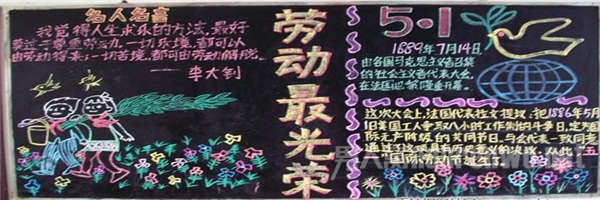 名人名言
我觉得人生求乐的方法,最好
莫过于尊重劳动。一切乐境,都可以
由劳动得来,一切苦境,都可由劳动解脱。
——李大钊
劳动最光荣
5·1
1889年7月14日
由各国马克思主义者召集
的社会主义者代表大会,
在法国巴黎隆重开幕。
这次大会上,法国代表拉文提议,把1886年5月
1日美国工人争取八小时工作制的斗争日,定为国
际无产阶级的共同节日。与会代表一致同意,
通过了这项具有历史意义的决议。从此,"五
一"国际劳动节诞生了。